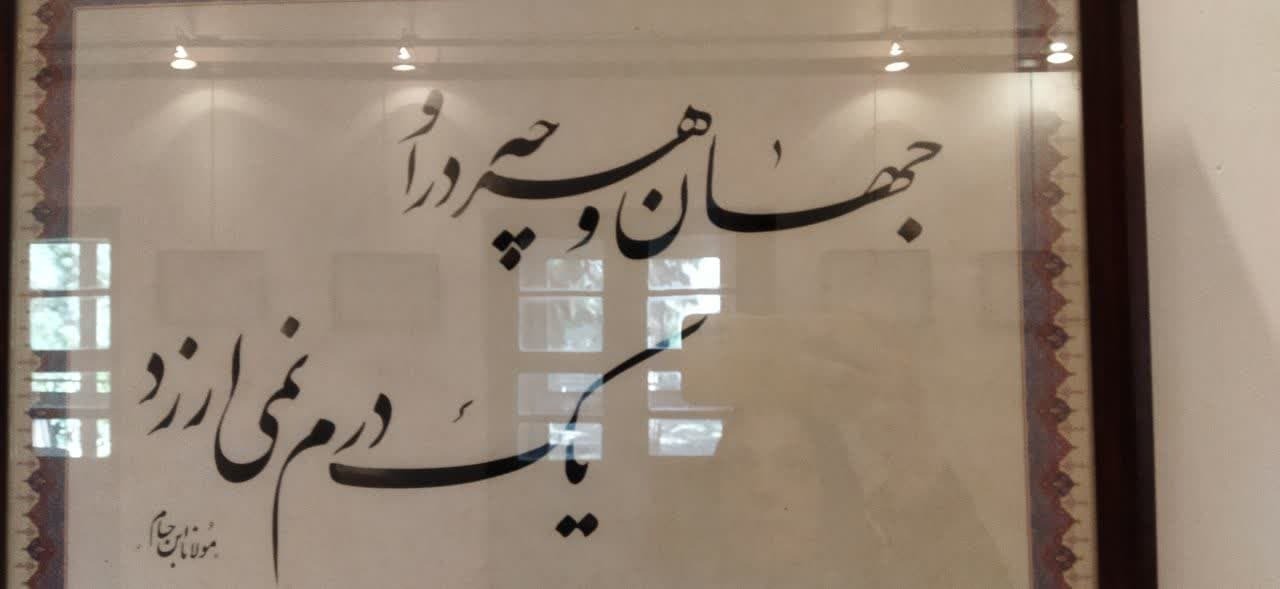 جهان و هر چه در او
یک درم نمی ارزد
مولانا ابن حسام